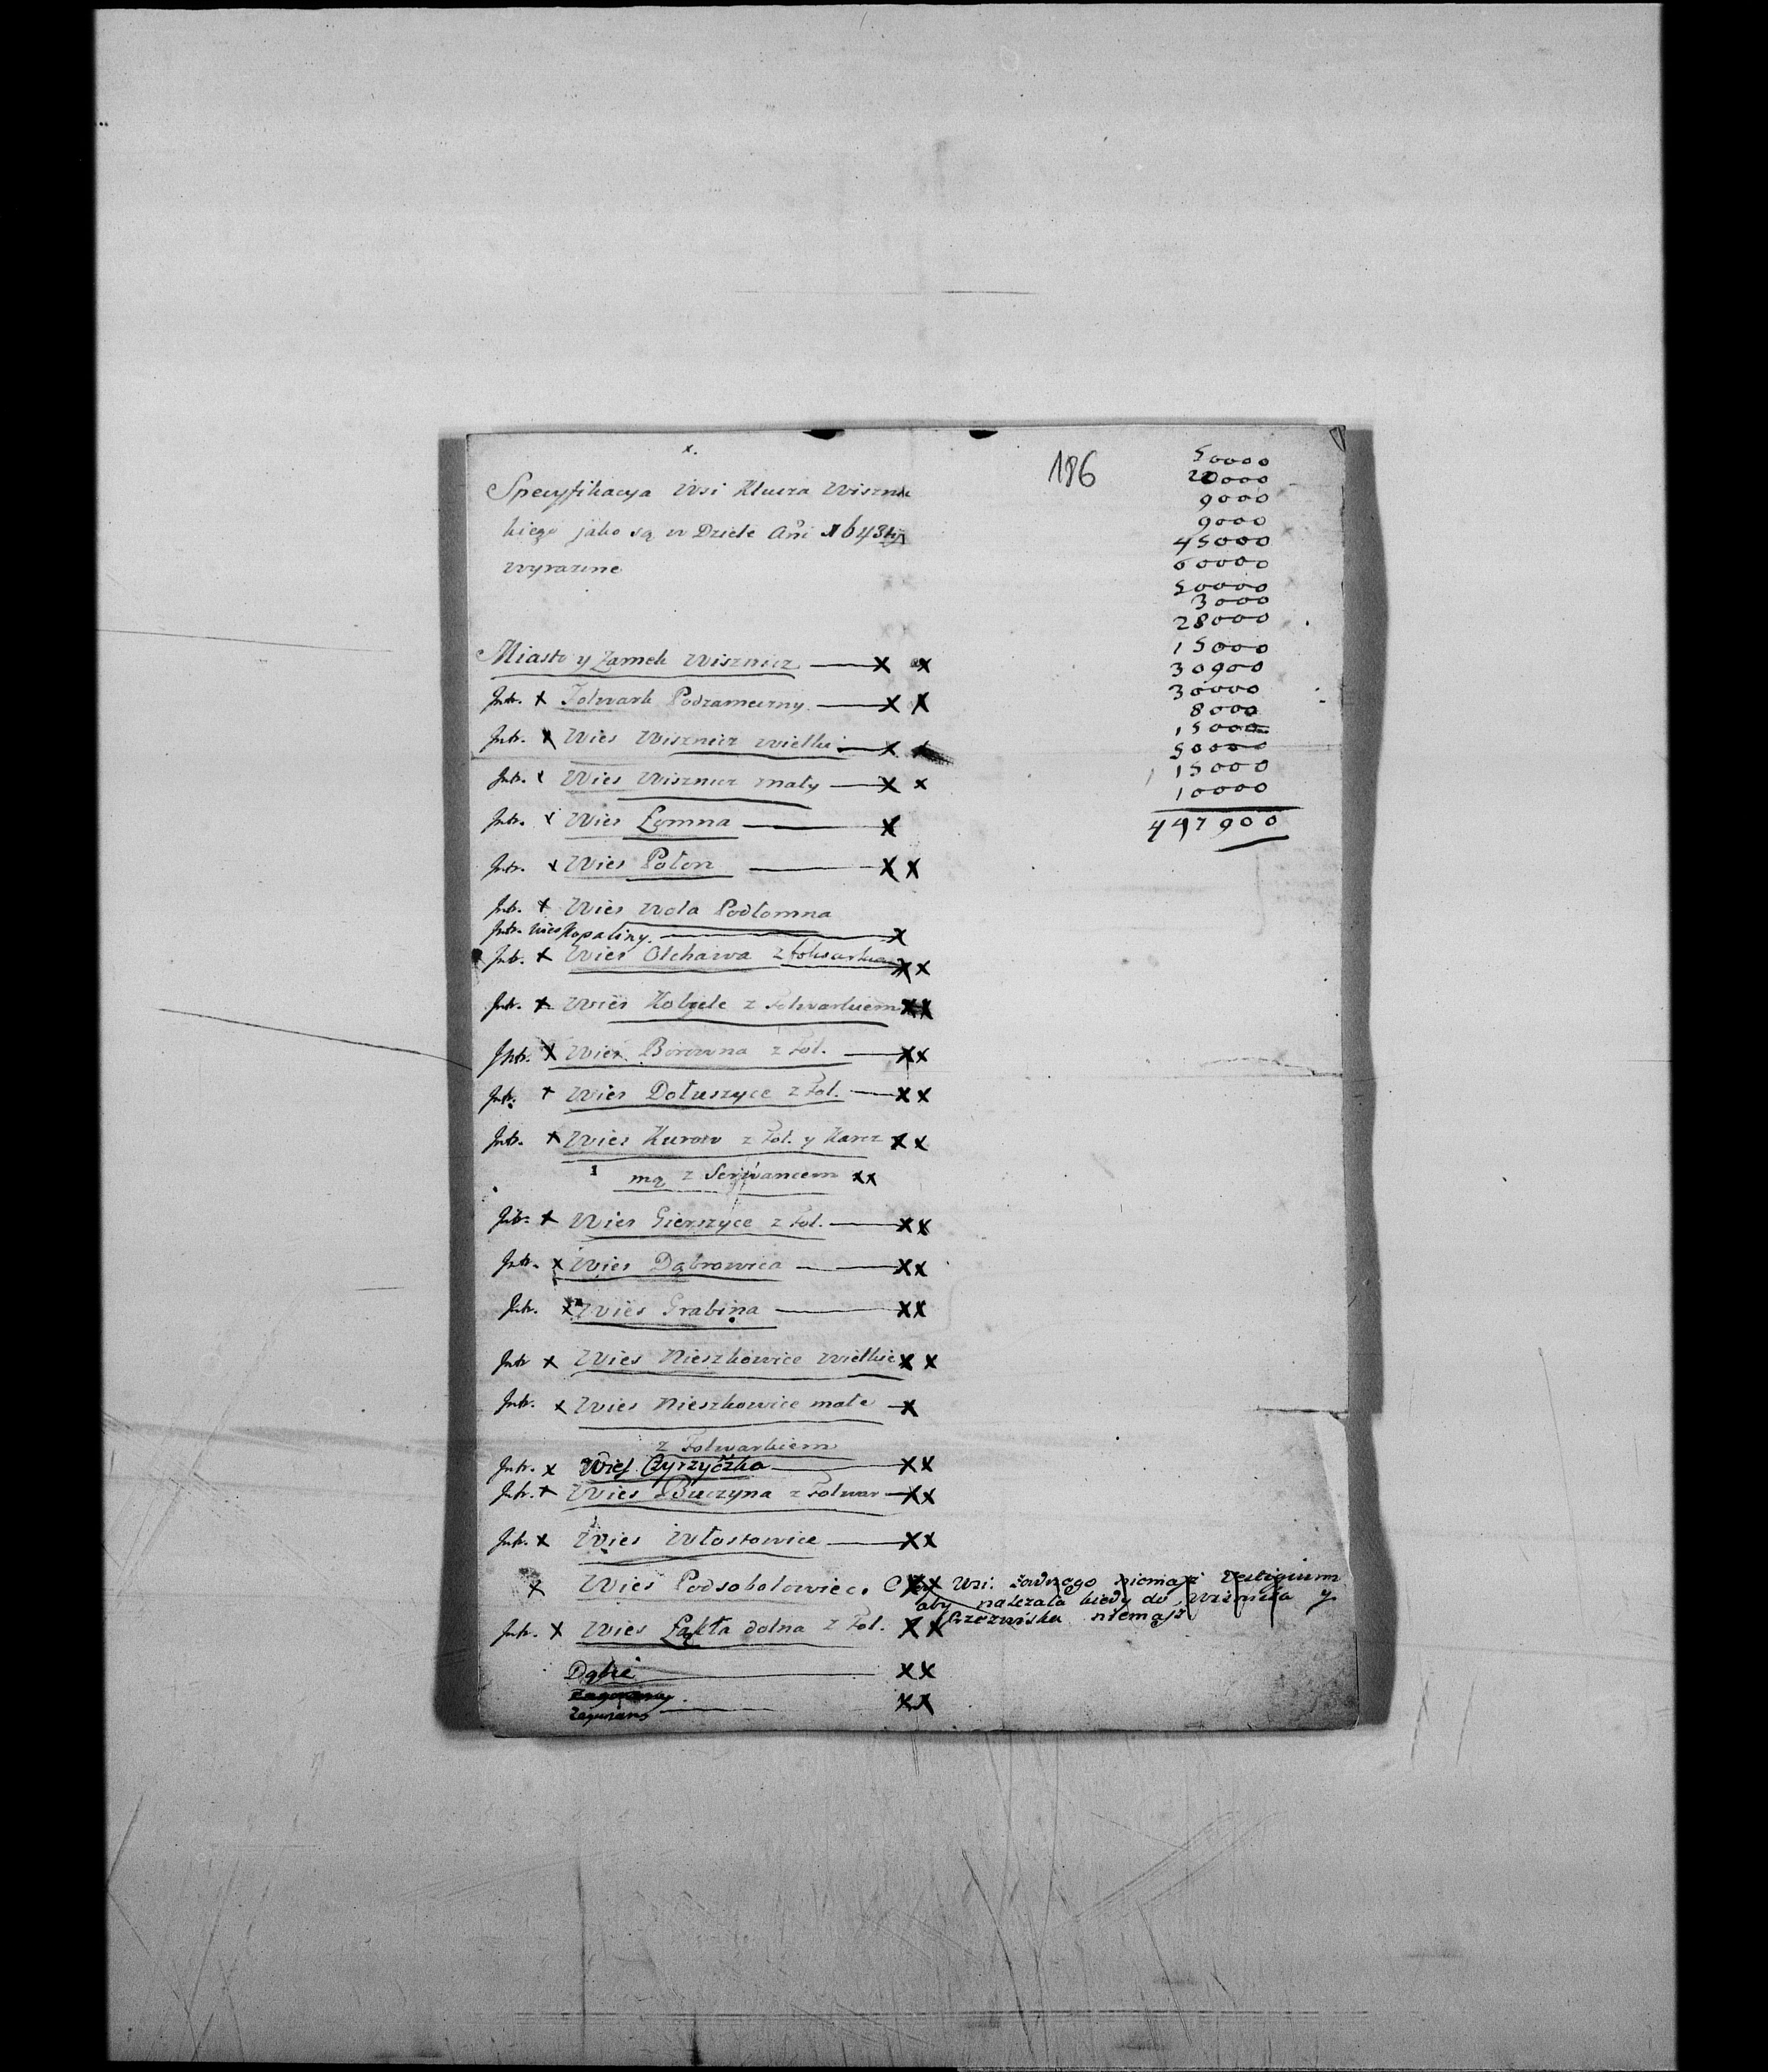 186
Specyfikacya Wsi Klucza Wisznic
kiego jako są w Dziele Ani 1643
wyrazine
Miasto y Zamek Wisznicz x x
Intr. x Folwark Podzameczny x x
Intr. x Wies Wisznicz wielki x
Intr. x Wies Wisznicz maly x x
Intr. x Wies Łomna x
Intr. x Wies Połon x x
Intr. x Wies Wola Podłomna
Intr. Wies Kopaliny x
Intr. x Wies Olchawa z folwarkiem x x
Intr. x Wies Kobyle z Folwarkiem x x
Intr. x Wies Borowna z Fol. x x
Intr. x Wies Dołuszyce z Fol. x x
Intr. x Wies Kurow z Fol. y Karcz x x
mą z x x
Intr. x Wies Gierszyce z Fol. x x
Intr. x Wies Dąbrowica x x
Intr. x Wies Grabina x x
Intr x Wies Nieszkowice Wielkie x x
Intr. x Wies Nieszkowice małe x
z Folwarkiem
Intr. x Wies Czyrzyczka x x
Intr. x Wies Buczyna z Folwar x x
Intr. x Wies Włostowice x x
x Wies Podsobolowiec. x x Wsi. żadnego niemasz Vestigium
aby nalezała kiedy do Wiśnicza y
Przezwiska niemasz
Intr. x Wies Łąkta dolna z Fol. x x
Dąbie x x
x x
50000
20000
9000
9000
45000
60000
50000
3000
28000
15000
30900
30000
8000
15000
50000
15000
10000
447900